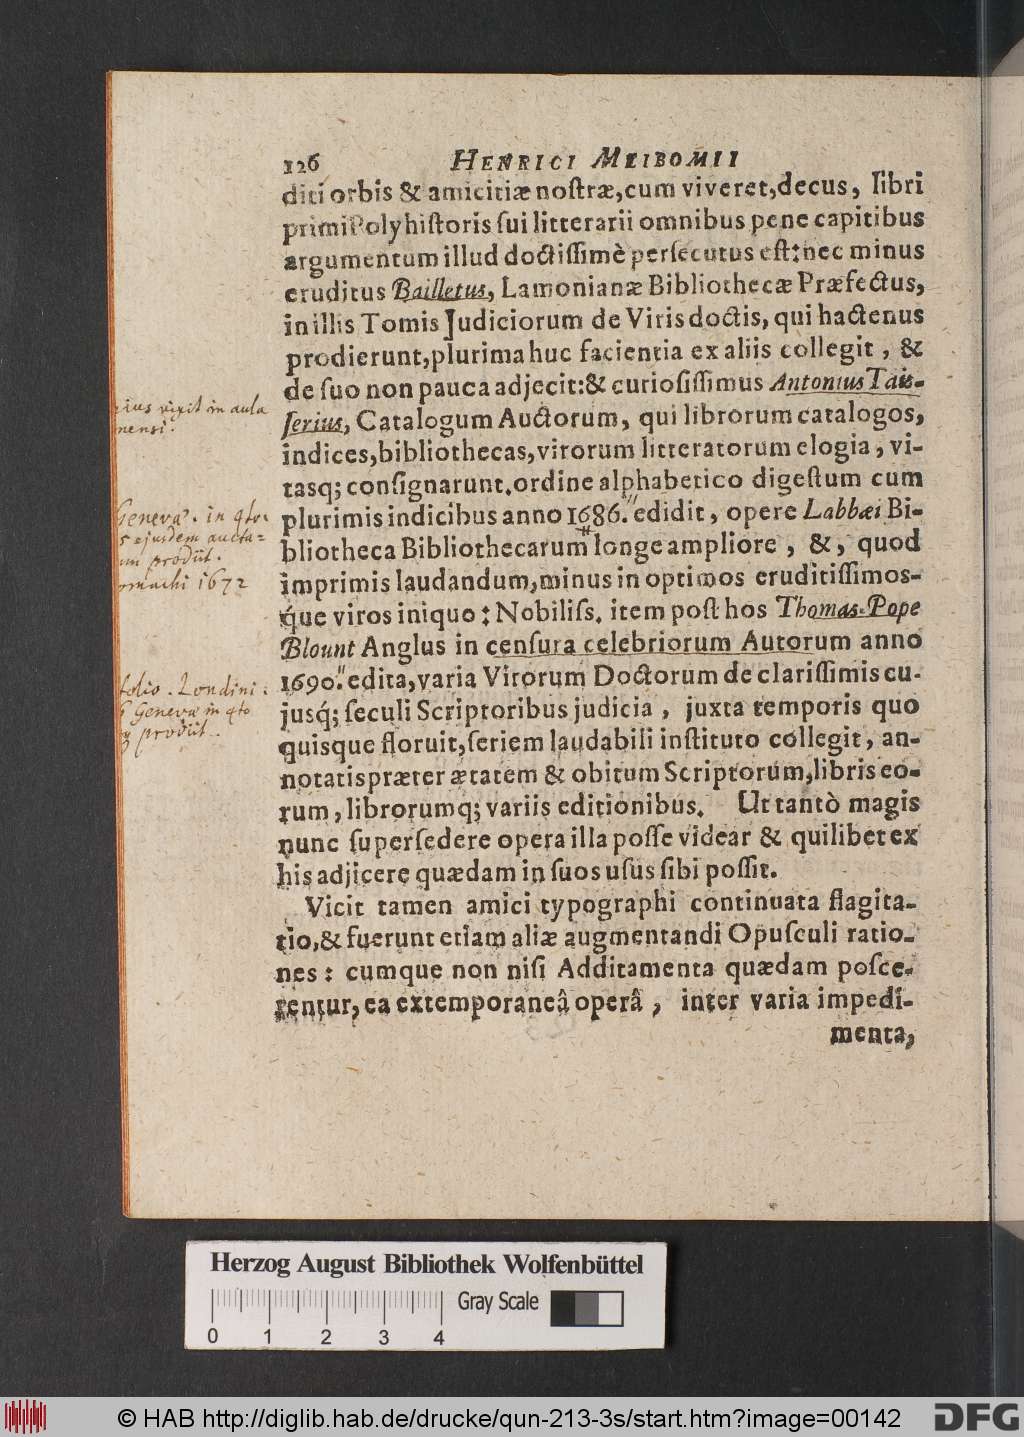 126 HENRICI MEIBOMII
diti orbis & amicitiæ nostræ, cum viveret, decus, libri
primi Polyhistoris sui litterarii omnibus pene capitibus
argumentum illud doctissimè persecutus est: nec minus
eruditus Bailletus, Lamonianæ Bibliothecæ Præfectus,
in illis Tomis Judiciorum de Viris doctis, qui hactenus
prodierunt, plurima huc facientia ex aliis collegit, &
de suo non pauca adjecit: & curiosissimus Antonius Tais-
serius, Catalogum Auctorum, qui librorum catalogos,
indices, bibliothecas, virorum litteratorum elogia, vi-
tasq; consignarunt, ordine alphabetico digestum cum
plurimis indicibus anno 1686. edidit, opere Labbæi Bi-
bliotheca Bibliothecarum longe ampliore, &, quod
imprimis laudandum, minus in optimos eruditissimos-
q́ue viros iniquo: Nobiliss. item post hos Thomas-Pope
Blount Anglus in censura celebriorum Autorum anno
1690. edita, varia Virorum Doctorum de clarissimis cu-
jusq́; seculi Scriptoribus judicia, juxta temporis quo
quisque floruit, seriem laudabili instituto collegit, an-
notatis præter ætatem & obitum Scriptorum, libris eo-
rum, librorumq; variis editionibus. Ut tantò magis
nunc supersedere opera illa posse videar & quilibet ex
his adjicere quædam in suos usus sibi possit.
Vicit tamen amici typographi continuata flagita-
tio, & fuerunt etiam aliæ augmentandi Opusculi ratio-
nes: cumque non nisi Additamenta quædam posce-
rentur, ea extemporaneâ operâ, inter varia impedi-
menta,
vixit in aula
nensi.
Genevæ. in 4to.
ejusdem aucta-
um prodiit.
1672
folio. Londini:
Genevæ in 4to
prodiit.
Herzog August Bibliothek Wolfenbüttel
Gray Scale
0 1 2 3 4
© HAB http://diglib.hab.de/drucke/qun-213-3s/start.htm?image=00142
DFG